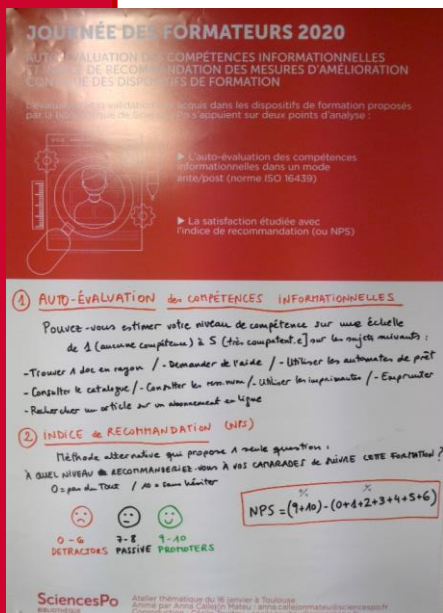 JOURNÉE DES FORMATEURS 2020
AUTO-ÉVALUATION DES COMPÉTENCES INFORMATIONNELLES
ET DE RECOMMANDATION DES MESURES D'AMÉLIORATION
DES DISPOSITIFS DE FORMATION
validation acquis dans les dispositifs de formation proposés
par la de Sciences Po s'appuient sur deux points d'analyse :
▶ L'auto-évaluation des compétences
informationnelles dans un mode
ante/post (norme ISO 16439)
▶ La satisfaction étudiée avec
l'indice de recommandation (ou NPS)
① AUTO-ÉVALUATION des COMPÉTENCES INFORMATIONNELLES
Pouvez-vous estimer votre niveau de compétence sur une échelle
de 1 (aucune compétence) à 5 (très compétent.e] sur les sujets suivants :
- Trouver 1 doc en rayon / - Demander de l'aide / - Utiliser les automates de prêt
- Consulter le catalogue / - Consulter les ress. num / - Utiliser les imprimantes / - Emprunter
- Rechercher un article sur un abonnement en ligne
② INDICE de RECOMMANDATION (NPS)
Méthode alternative qui propose 1 seule question :
À QUEL NIVEAU RECOMMANDERIEZ-VOUS À VOS CAMARADES de SUIVRE CETTE FORMATION ?
0 = pas du Tout / 10 = sans hésiter
% %
NPS = (9+10) - (0+1+2+3+4+5+6)
0 - 6 7-8 9-10
DETRACTORS PASSIVE PROMOTERS
SciencesPo
BIBLIOTHÈQUE
Atelier thématique du 16 janvier à Toulouse
Animé par Anna Callejón Mateu : anna.callejonmateu@sciencespo.fr